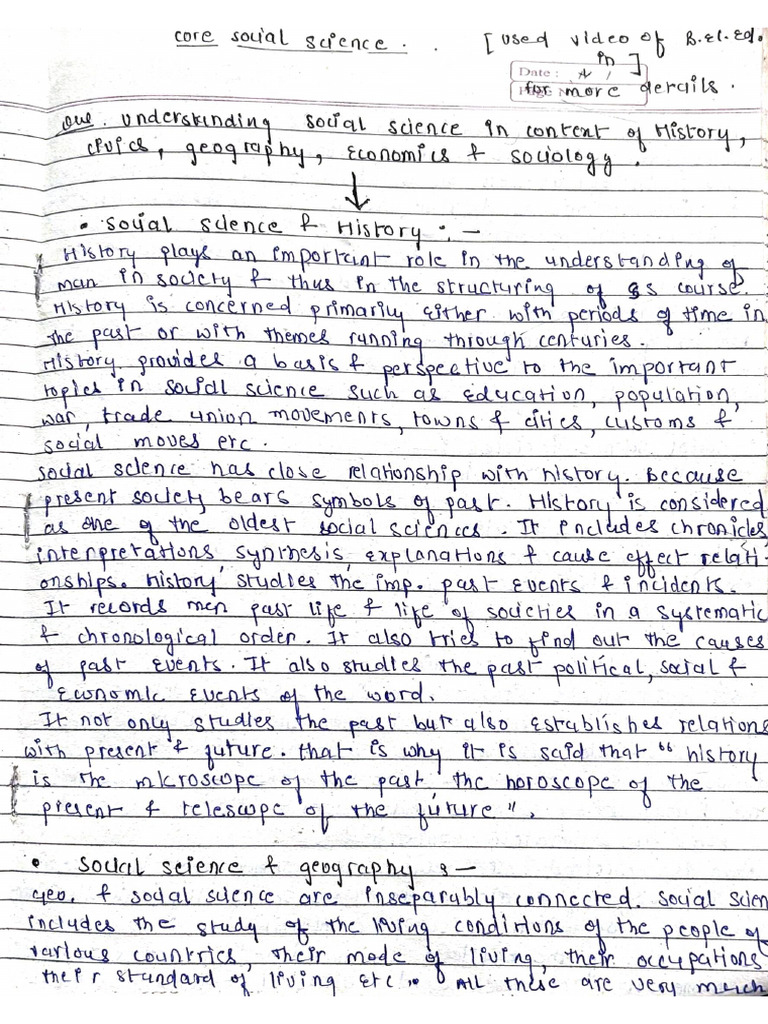 core social science . . [ used video of B.El.Ed.
in ]
Date :
for more details .
Que. Understanding social science in content of History,
civics, geography, Economics & sociology .
• Social Science & History : –
History plays an important role in the understanding of
man in society & thus in the structuring of SS course.
History is concerned primarily either with periods of time in
the past or with themes running through centuries.
History provides a basis & perspective to the important
topics in social science such as education, population,
war, trade union movements, towns & cities, customs &
social moves etc.
Social science has close relationship with history. Because
present society bears symbols of past. History is considered
as one of the oldest social sciences. It includes chronicles,
interpretations, synthesis, explanations & cause effect relati-
onships. history studies the imp. past events & incidents.
It records men past life & life of societies in a systematic
& chronological order. It also tries to find out the causes
of past events. It also studies the past political, social &
Economic events of the word.
It not only studies the past but also establishes relations
with present & future. that is why it is said that " history
is the microscope of the past, the horoscope of the
present & telescope of the future ".
• Social science & geography : –
Geo. & social science are inseparably connected. Social Scien
includes the study of the living conditions of the people of
various countries, their mode of living, their occupations
their standard of living etc. . All these are very much